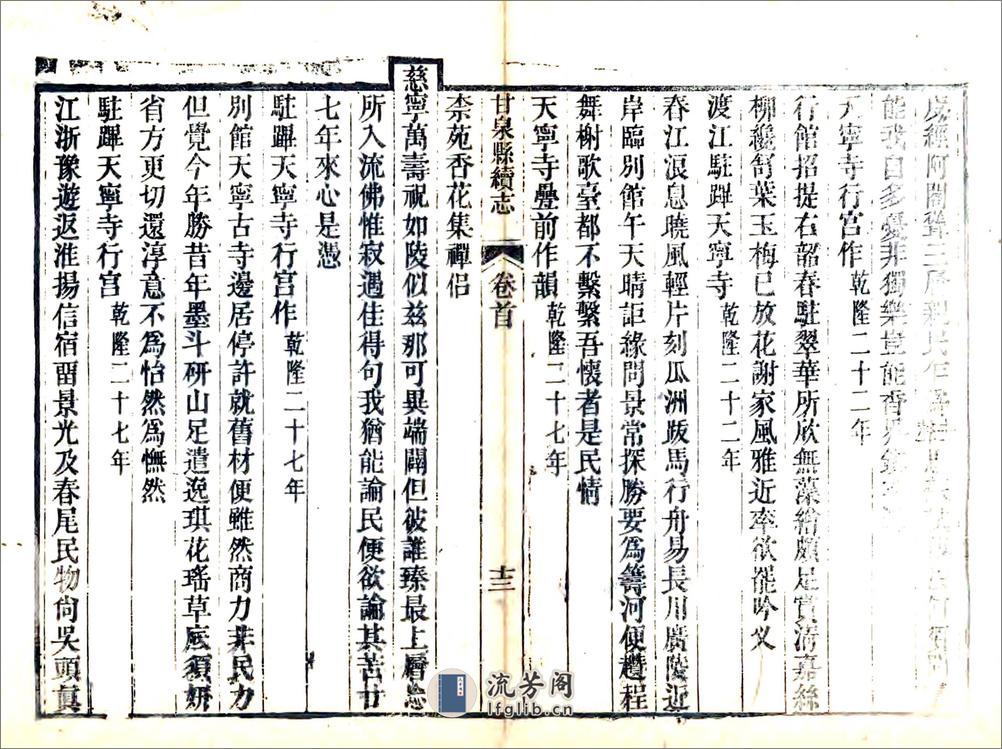 度經阿閣聳三層親民
能我自多憂非獨樂豈能
天寧寺行宮作 乾隆二十二年
行館招提右韶春駐翠華所欣無藻繪頗足賞淸嘉絲
柳纔葉玉梅已放花謝家風雅近率欲罷吟叉
渡江駐蹕天寧寺 乾隆二十二年
春江浪息曉風輕片刻瓜洲跋馬行舟易長川廣陵近
岸臨別館午天晴詎緣問景常探勝要爲籌河便趲程
舞榭歌臺都不繫繫吾懷者是民情
天寧寺疊前作韻 乾隆二十七年
甘泉縣續志 卷首 十三
柰苑香花集禪侶
慈寧萬壽祝如陵似兹那可異端闢但彼誰臻最上層忘
所入流佛惟寂遇佳得句我猶能論民便欲論其苦廿
七年來心是憑
駐蹕天寧寺行宮作 乾隆二十七年
別館天寧古寺邊居停許就舊材便雖然商力非民力
但覺今年勝昔年墨斗研山足遣逸琪花瑤草底須妍
省方更切還淳意不為怡然為憮然
駐蹕天寧寺行宮 乾隆二十七年
江浙豫遊返淮揚信宿畱景光及春尾民物尙吳頭眞
流芳阁
lfglib.cn